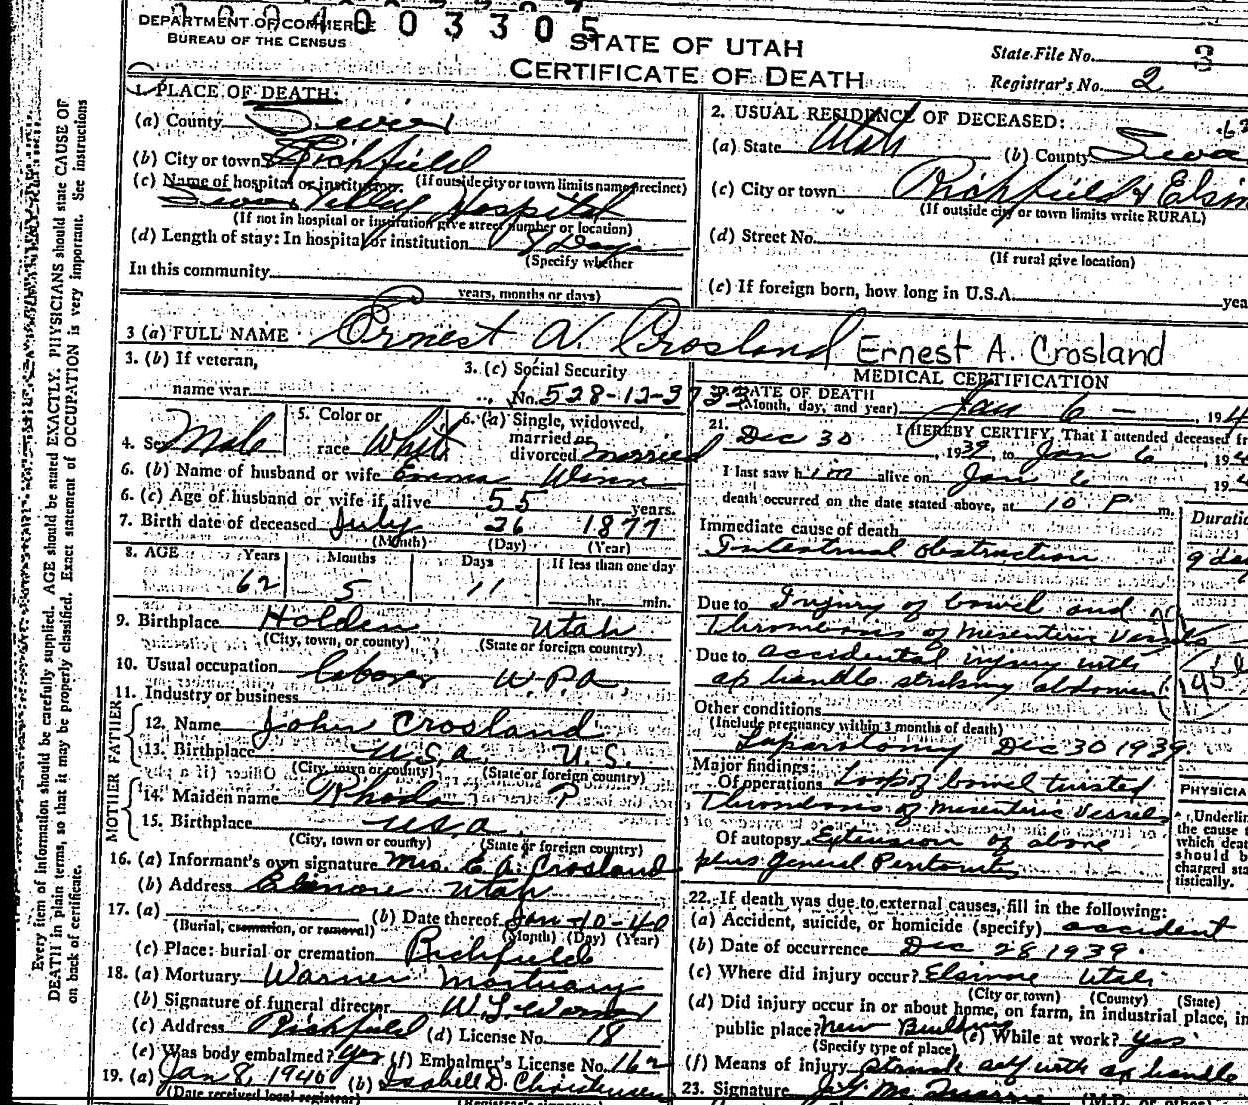 1004003305
DEPARTMENT OF COMMERCE
BUREAU OF THE CENSUS
STATE OF UTAH
CERTIFICATE OF DEATH
State File No. 3
Registrar's No. 2
Every item of information should be carefully supplied. AGE should be stated EXACTLY. PHYSICIANS should state CAUSE OF
DEATH in plain terms, so that it may be properly classified. Exact statement of OCCUPATION is very important. See instructions
on back of certificate.
1. PLACE OF DEATH:
(a) County Sevier
(b) City or town Richfield
(c) Name of hospital or institution: (If outside city or town limits name precinct)
Sevier Valley Hospital
(If not in hospital or institution give street number or location)
(d) Length of stay: In hospital or institution 9 Days
(Specify whether
In this community
years, months or days)
2. USUAL RESIDENCE OF DECEASED:
(a) State Utah (b) County Sevie
(c) City or town Richfield & Elsin
(If outside city or town limits write RURAL)
(d) Street No.
(If rural give location)
(e) If foreign born, how long in U.S.A. yea
3 (a) FULL NAME Ernest A. Crosland Ernest A. Crosland
3. (b) If veteran,
name war
3. (c) Social Security
No. 528-12-3733
4. Sex Male
5. Color or
race White
6. (a) Single, widowed,
married or
divorced married
6. (b) Name of husband or wife Emma Winn
6. (c) Age of husband or wife if alive 55 years.
7. Birth date of deceased July 26 1877
(Month) (Day) (Year)
8. AGE Years Months Days If less than one day
62 5 11 hr. min.
9. Birthplace Holden Utah
(City, town, or county) (State or foreign country)
10. Usual occupation labore W.P.A.
11. Industry or business
FATHER
12. Name John Crosland
13. Birthplace U.S.A. U.S.
(City, town or county) (State or foreign country)
MOTHER
14. Maiden name Rhoda ?
15. Birthplace U.S.A.
(City, town or county) (State or foreign country)
16. (a) Informant's own signature Mrs. E.A. Crosland
(b) Address Elsinore Utah
17. (a) (b) Date thereof Jan-10-40
(Burial, cremation, or removal) (Month) (Day) (Year)
(c) Place: burial or cremation Richfield
18. (a) Mortuary Warner Mortuary
(b) Signature of funeral director W.L. Warner
(c) Address Richfield (d) License No. 18
(e) Was body embalmed? yes (f) Embalmer's License No. 162
19. (a) Jan 8, 1940 (b) Isabell D. Christensen
(Date received local registrar) (Registrar's signature)
MEDICAL CERTIFICATION
DATE OF DEATH
(Month, day, and year) Jan 6 - , 194
21. I HEREBY CERTIFY, That I attended deceased fr
Dec 30, 1939, to Jan 6, 194
I last saw him alive on Jan 6, 194
death occurred on the date stated above, at 10 P m.
Immediate cause of death
Intestinal obstruction
Duratio
9 day
Due to Injury of bowel and
Thrombosis of Mesenteric Vessels
Due to accidental injury with
ax handle striking abdomen
Other conditions
(Include pregnancy within 3 months of death)
Laparotomy Dec 30 1939.
Major findings:
Of operations Loop of bowel twisted
Thrombosis of Mesenteric Vessels
Of autopsy Extension of above
plus General Peritonitis
PHYSICIA
Underlin
the cause t
which deat
should b
charged sta
tistically.
22. If death was due to external causes, fill in the following:
(a) Accident, suicide, or homicide (specify) accident
(b) Date of occurrence Dec 28 1939.
(c) Where did injury occur? Elsinore Utah
(City or town) (County) (State)
(d) Did injury occur in or about home, on farm, in industrial place, in
public place? New Building (e) While at work? yes
(Specify type of place)
(f) Means of injury Struck self with ax handle
23. Signature
(M.D. or other)